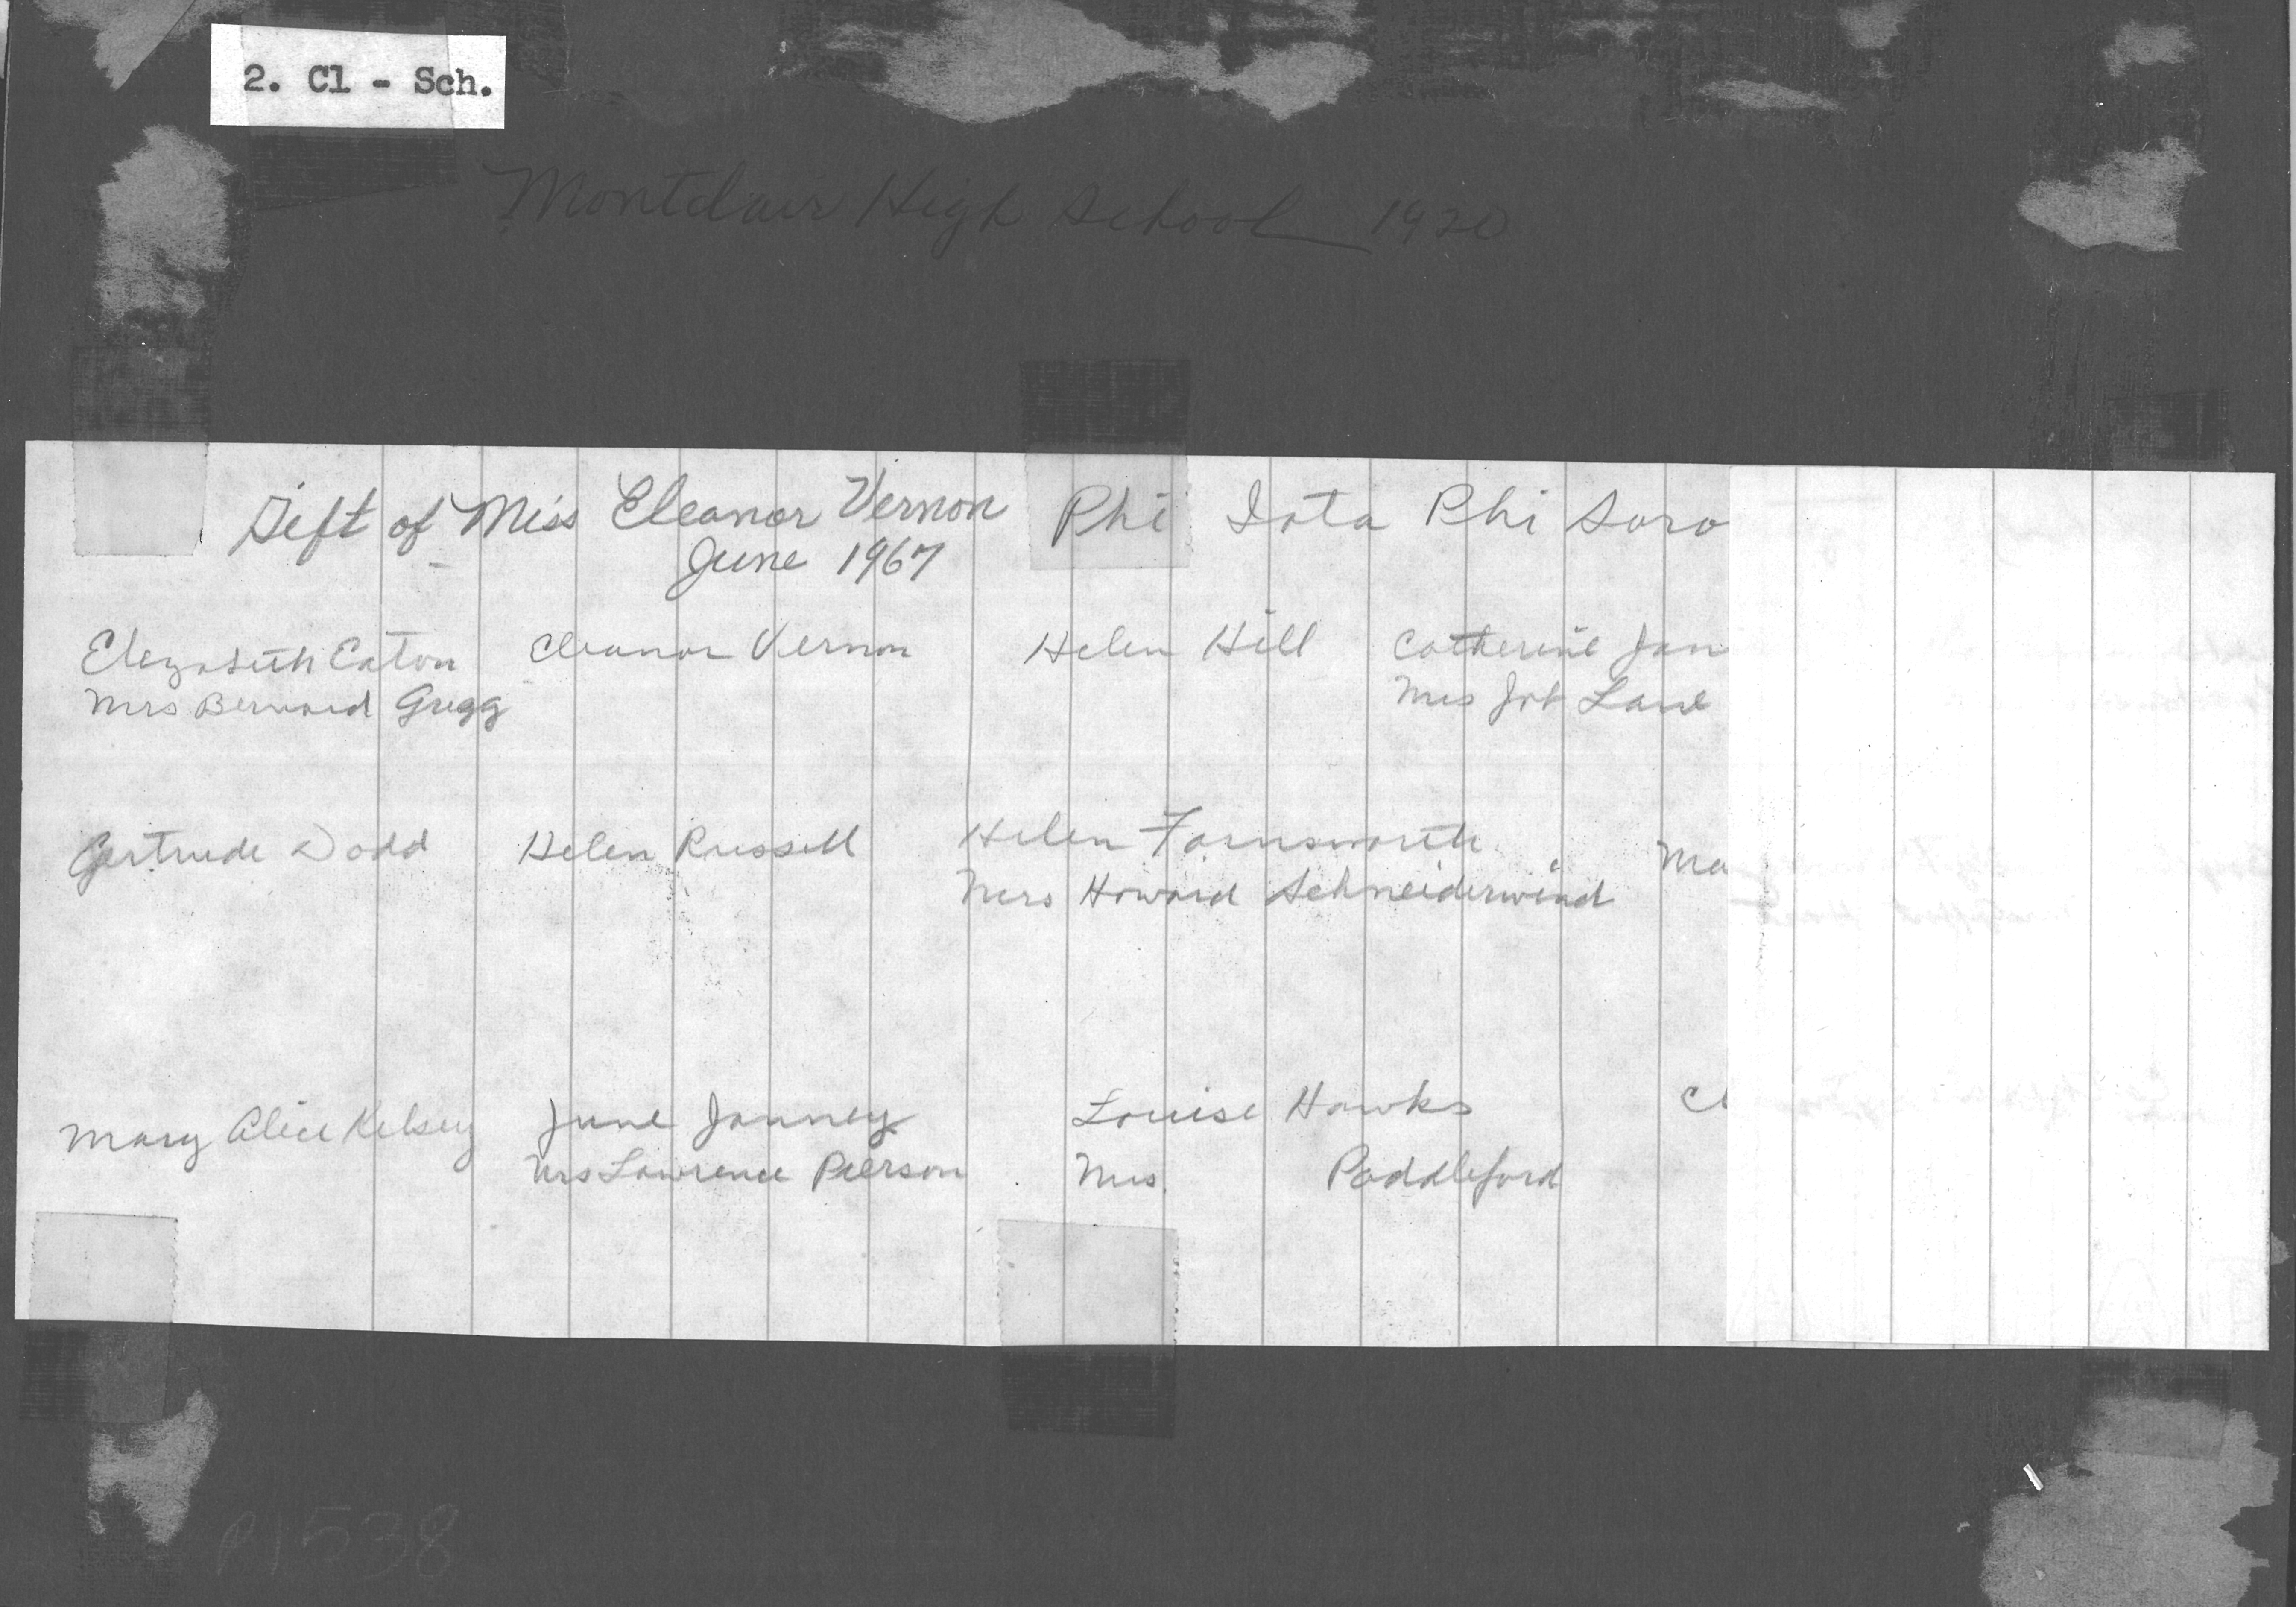 2. Cl - Sch.
Montclair High School 1920
Gift of Miss Eleanor Vernon Phi Iota Phi Soro
June 1967
Elizabeth Eaton Eleanor Vernon Helen Hill Catherine Jan
Mrs Bernard Gregg Mrs Job Lane
Gertrude Dodd Helen Russell Helen Farnsworth Ma
Mrs Howard Schneiderwind
Mary Alice Kelsey June Janney Louise Hawks Cl
Mrs Lawrence Pierson Mrs Paddleford
P1538